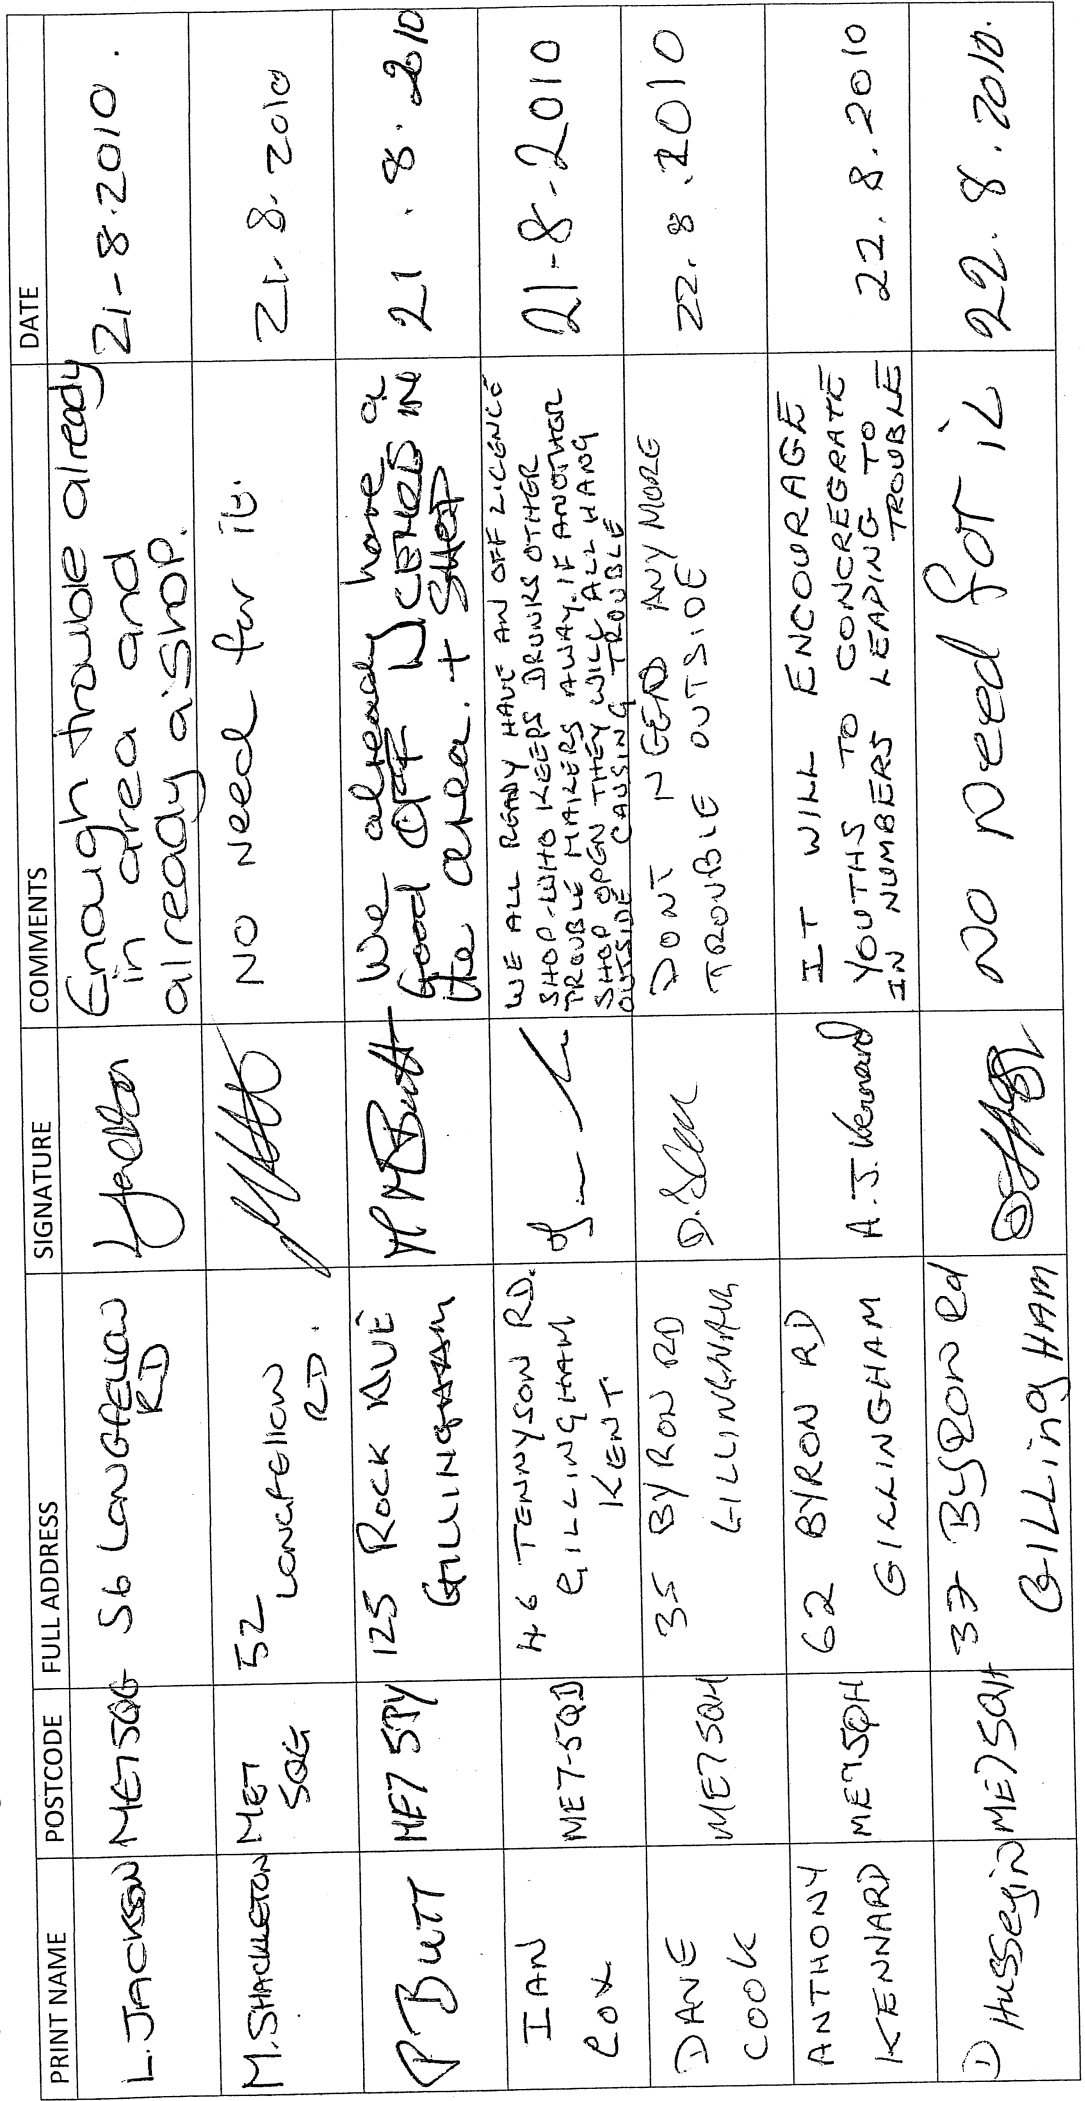 PRINT NAME POSTCODE FULL ADDRESS SIGNATURE COMMENTS DATE
L. JACKSON ME7 5QG 56 LONGFELLOW
RD
Enough trouble already
in area and
already a shop.
21-8-2010.
M. SHACKLETON ME7
5QG
52
LONGFELLOW
RD.
NO need for it.
21.8.2010
P BUTT ME7 5PY 125 ROCK AVE
GILLINGHAM
P M Butt
We already have a
Good OFF LICENCED IN
the area. + SHOP
21.8.2010
IAN
COX
ME7-5QD
46 TENNYSON RD.
GILLINGHAM
KENT
WE ALL READY HAVE AN OFF LICENCE
SHOP-WHO KEEPS DRUNKS OTHER
TROUBLE MAKERS AWAY. IF ANOTHOR
SHOP OPEN THEY WILL ALL HANG
OUTSIDE CAUSING TROUBLE
21-8-2010
DANE
COOK
ME7 5QH
35 BYRON RD
GILLINGHAM
DONT NEED ANY MORE
TROUBLE OUTSIDE
22.8.2010
ANTHONY
KENNARD
ME7 5QH
62 BYRON RD
GILLINGHAM
A.J. Kennard
IT WILL ENCOURAGE
YOUTHS TO CONCREGRATE
IN NUMBERS LEADING TO
TROUBLE
22.8.2010
D Husseyin ME7 5QH 37 Byron Rd
GILLingHAM
NO Need for it
22.8.2010.